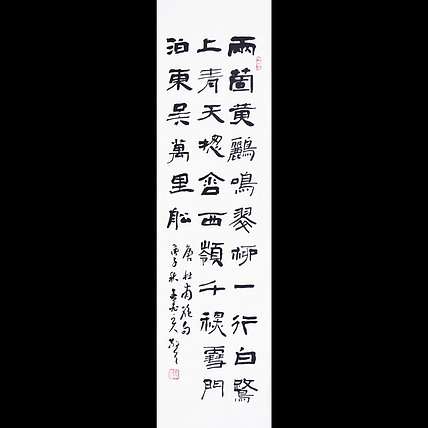 兩箇黃鸝鳴翠柳一行白鷺
上青天牕含西嶺千秋雪門
泊東吳萬里船
唐杜甫絶句
丙子秋